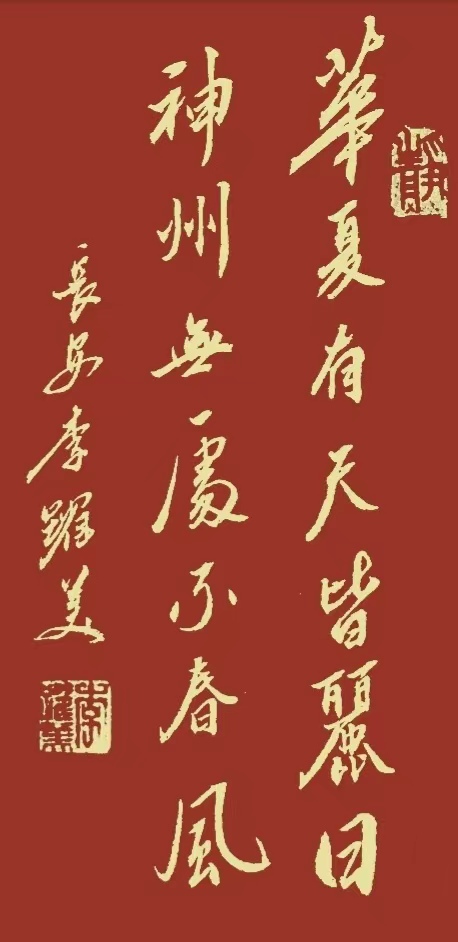 華夏有天皆麗日
神州無處不春風
長安李躍美